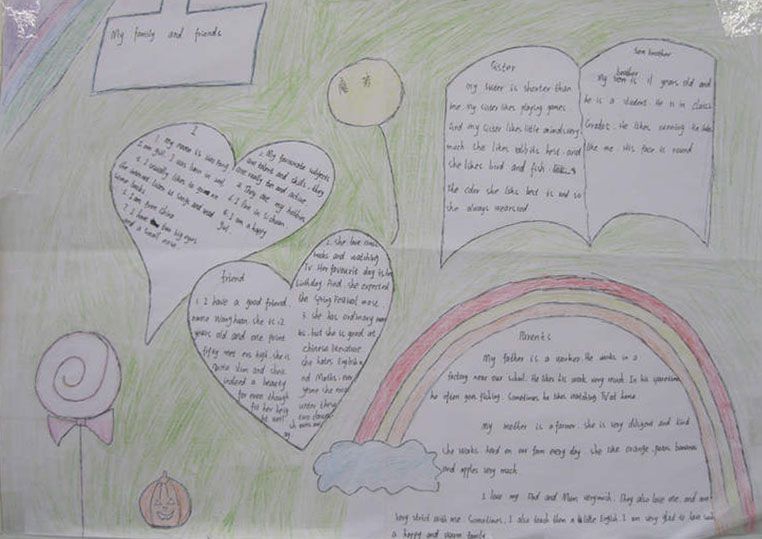 My family and friends
1
1. my name is
I am girl. I was born in
4. I usually likes to
the internet, listen to songs and read
some books.
I am from China
7. I have two big eyes
and a small nose.
2. My favourite subjects
are talent and skills. they
are really fun and active
They are my hobbies.
I live in Sichuan
6. I am a happy
girl.
friend
1. I have a good friend,
name Wang huan. she is 12
years old and one point
fifty metres high. she is
quite slim and she is
indeed a beauty
for even though
2. she love comic
books and watching
TV. Her favourite day is her
birthday. And she expected
the Spring Festival most.
3. she has ordinary
but she is good at
chinese literature
she hates English a
nd Maths.
Sister
My sister is shorter than
me My sister likes playing games
And my sister likes little animals very
much she likes rabbits best. and
she likes bird and fish
The color she likes best is red so
she always wears red.
brother
My brother is 11 years old and
he is a student. He is in class
Grade6. He likes running. He looks
like me. His face is round
Parents
My father is a worker. He works in a
factory near our school. He likes his work very much. In his sparetime
he often goes fishing. Sometimes he likes watching TV at home
my mother is a farmer. she is very diligent and kind
she works hard on our farm every day. she like orange, pears bananas
and apples very much.
I love my Dad and Mum very much. They also love me. and are
very strict with me. Sometimes, I also teach them a little English I am very glad to have such
a happy and warm family